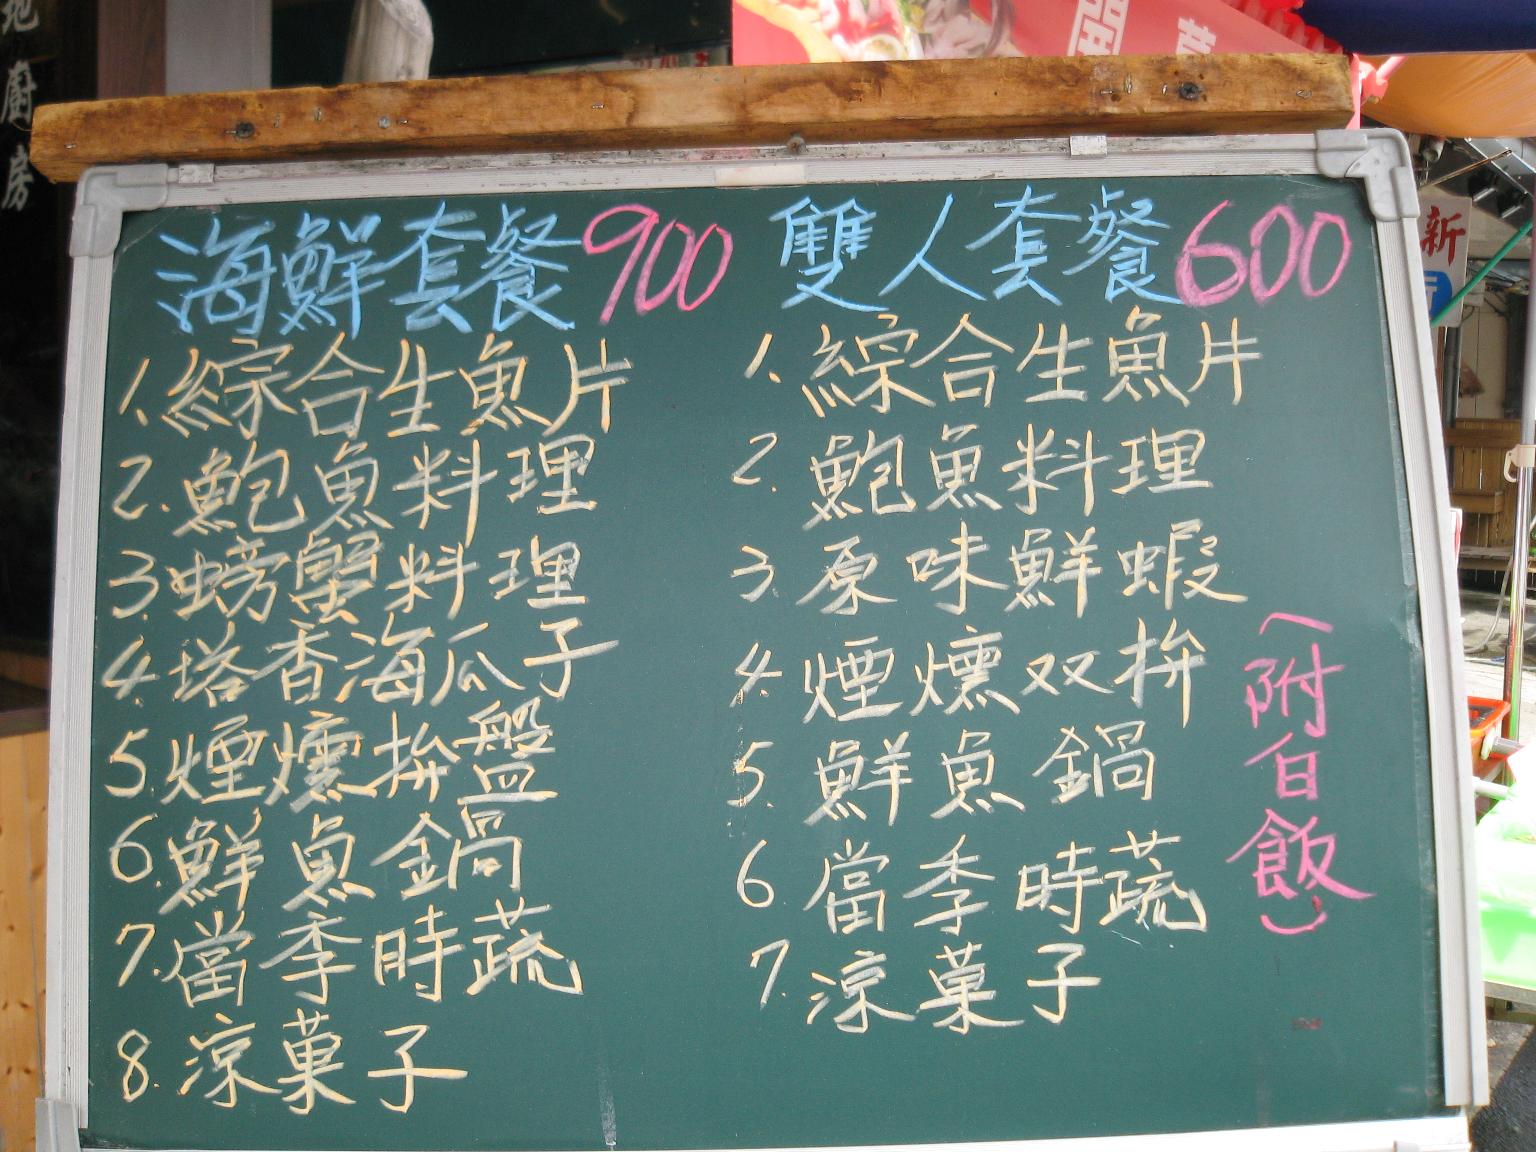 地廚房
開
新
海鮮套餐900
1.綜合生魚片
2.鮑魚料理
3.螃蟹料理
4.塔香海瓜子
5.煙燻拚盤
6.鮮魚鍋
7.當季時蔬
8.涼菓子
雙人套餐600
1.綜合生魚片
2.鮑魚料理
3.原味鮮蝦
4.煙燻双拚
5.鮮魚鍋
6當季時蔬
7.涼菓子
(附白飯)